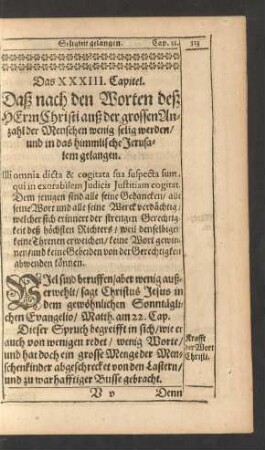 Seligkeit gelangen. Cap. 11. 313
Das XXXIII. Capitel.
Daß nach den Worten deß
HErrn Christi auß der grossen An-
zahl der Menschen wenig selig werden/
und in das himmlische Jerusa-
lem gelangen.
Illi omnia dicta & cogitata sua suspecta sunt
qui in exorabilem Judicis Justitiam cogitat.
Dem jenigen sind alle seine Gedancken/ alle
seine Wort und alle seine Werck verdächtig/
welcher sich erinnert der strengen Gerechtig-
keit deß höchsten Richters/ weil denselbigen
keine Threnen erweichen/ keine Wort gewin-
nen/ und keine Gebeiden von der Gerechtigkeit
abwenden können.
VIel sind beruffen/ aber wenig auß-
erwehlt/ sagt Christus Jesus in
dem gewöhnlichen Sonntägli-
chen Evangelio/ Matth. am 22. Cap.
Dieser Spruch begreifft in sich/ wie er
auch von wenigen redet/ wenig Worte/
und hat doch ein grosse Menge der Men-
schenkinder abgeschrecket von den Lastern/
und zu warhafftiger Busse gebracht.
Kraffe
der Wort
Christi.
V v Denn